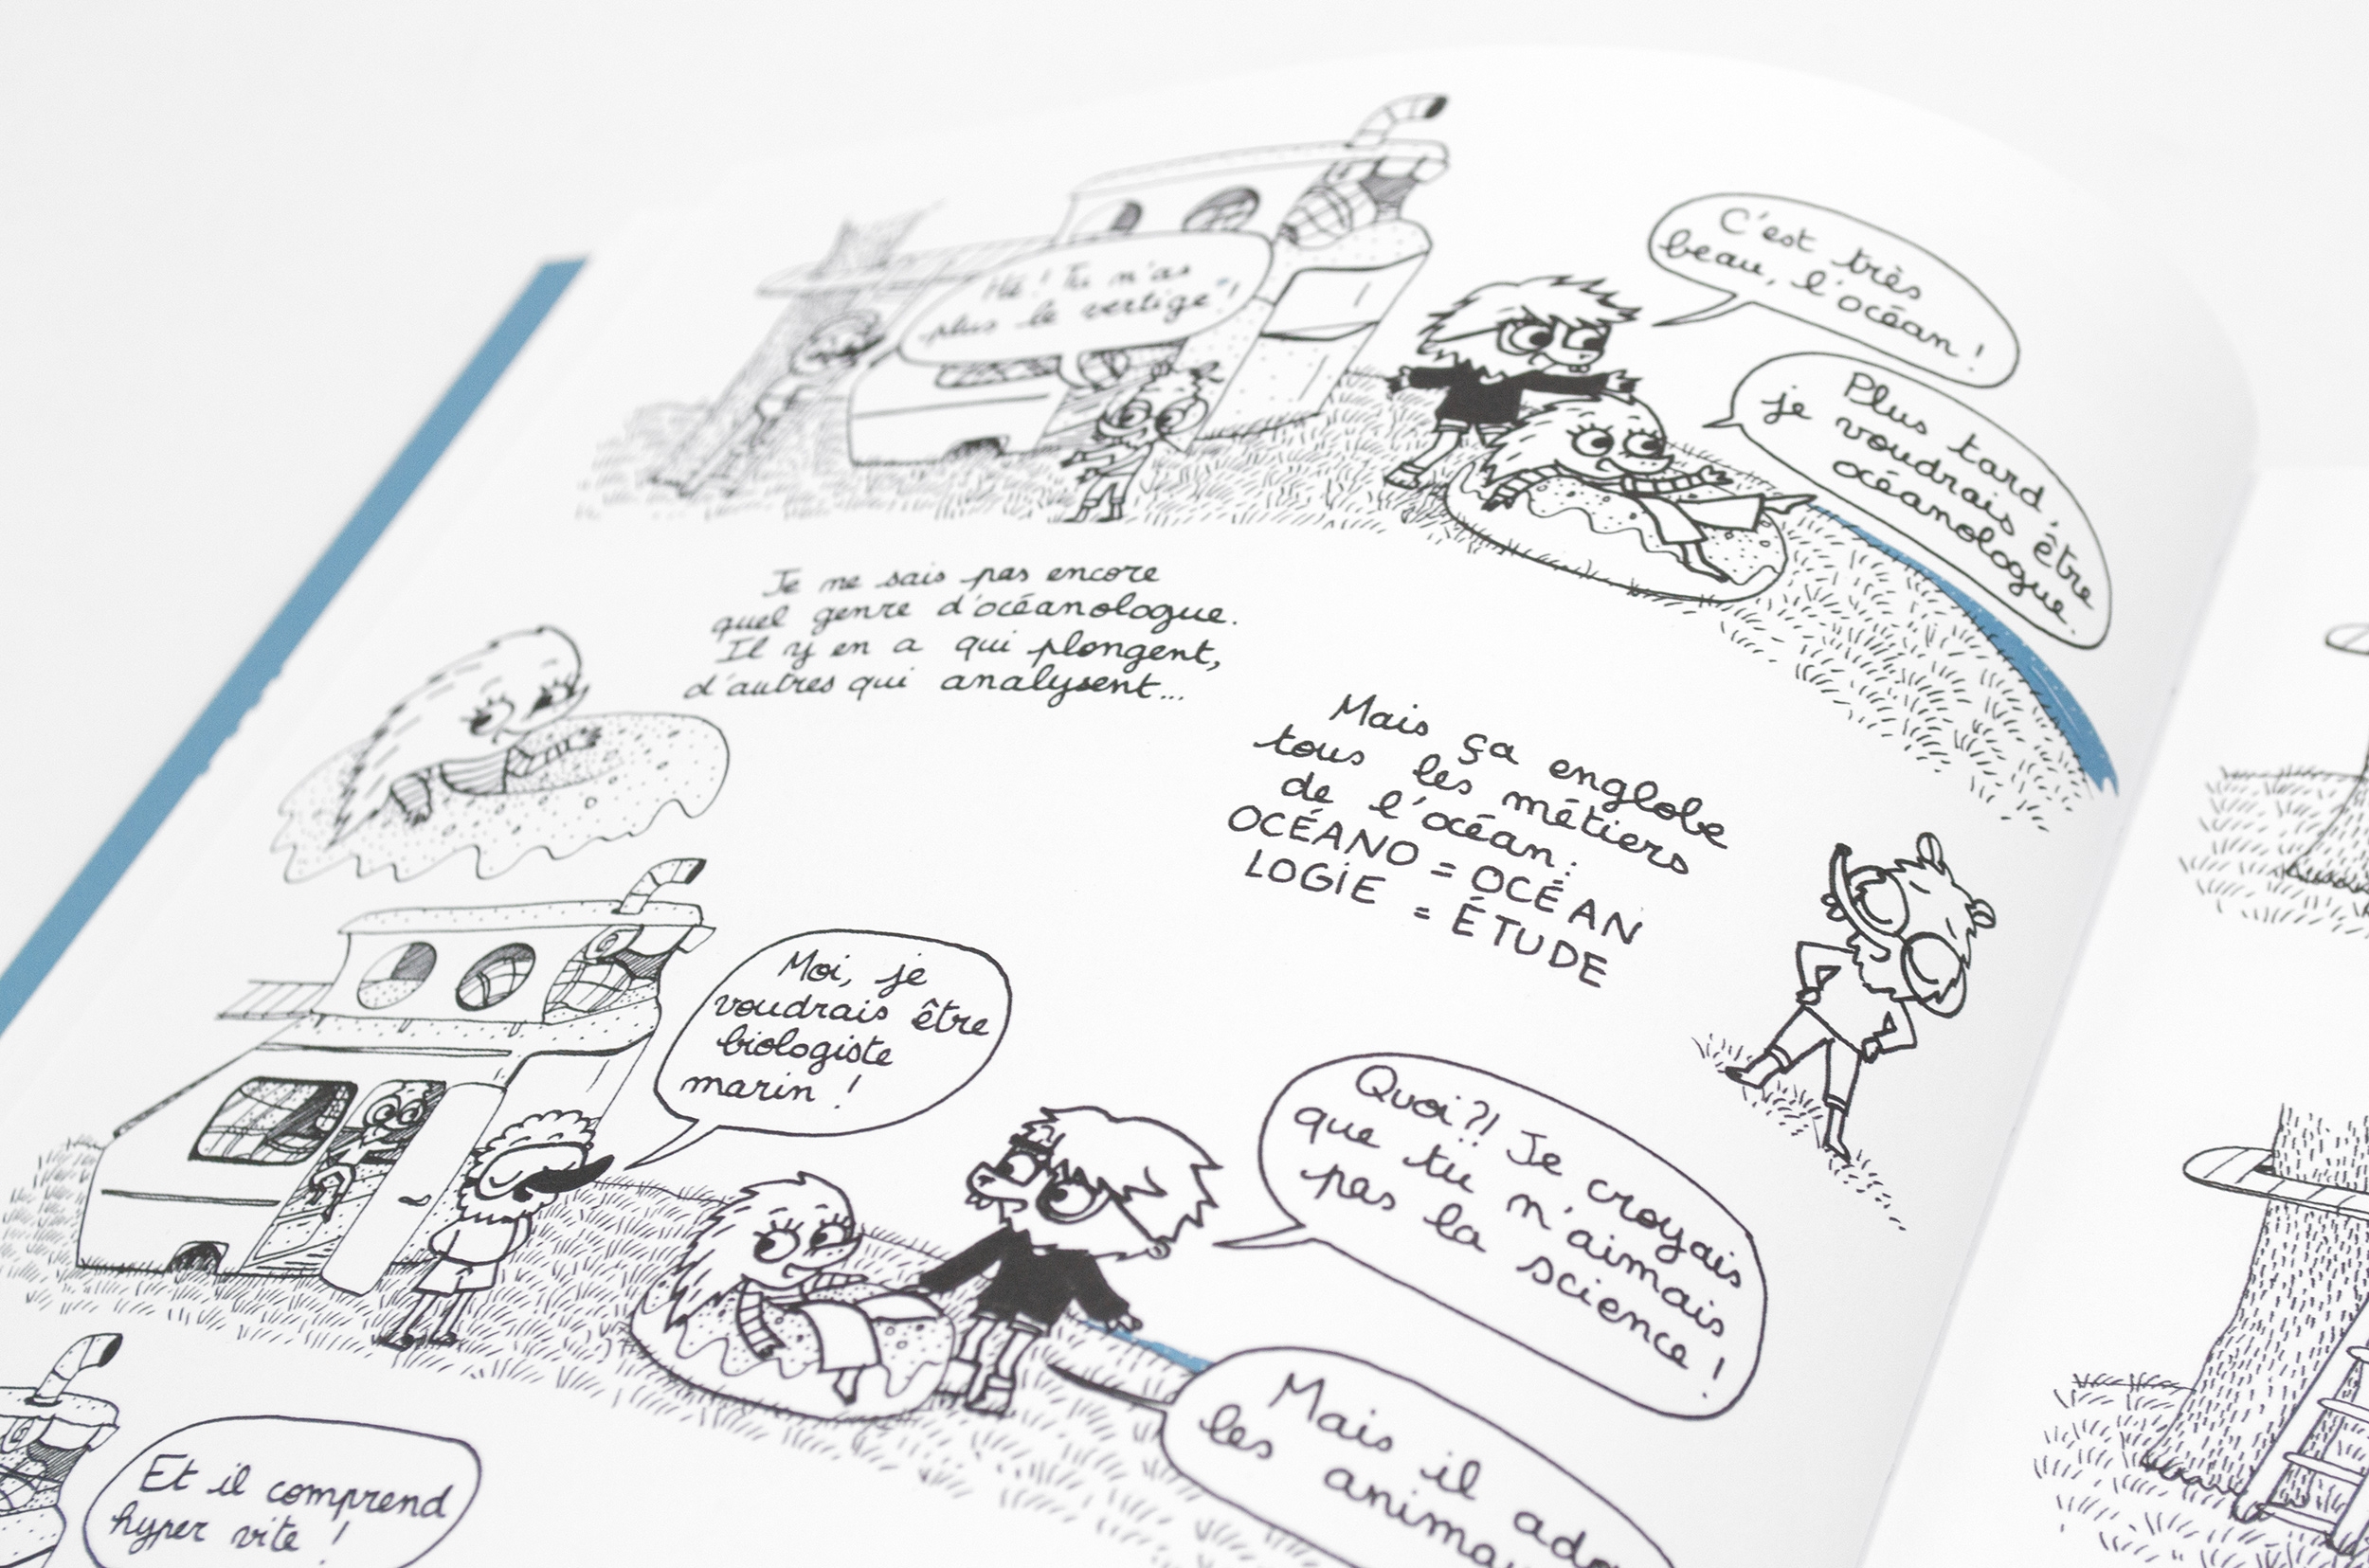 Hé ! Tu n'as
plus le vertige !
C'est très
beau, l'océan !
Plus tard,
je voudrais être
océanologue.
Je ne sais pas encore
quel genre d'océanologue.
Il y en a qui plongent,
d'autres qui analysent...
Mais ça englobe
tous les métiers
de l'océan :
OCÉANO = OCÉAN
LOGIE = ÉTUDE
Moi, je
voudrais être
biologiste
marin !
Quoi ?! Je croyais
que tu n'aimais
pas la science !
Mais il
les
Et il comprend
hyper vite !